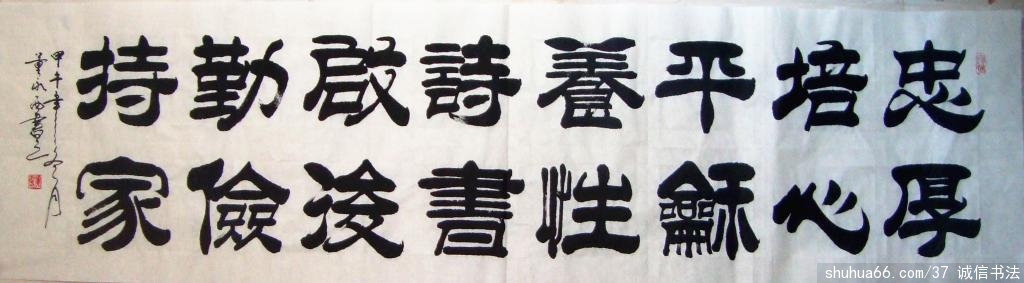 忠厚
培心
平龢
養性
詩書
啟後
勤儉
持家
甲午年之冬月
董
shuhua66.com/37 诚信书法